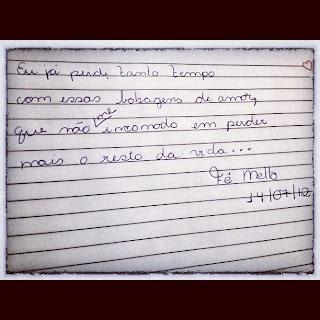 Eu já perdi tanto tempo
com essas bobagens de amor,
que não me incomodo em perder
mais o resto da vida...
Fé Mello
14/07/12